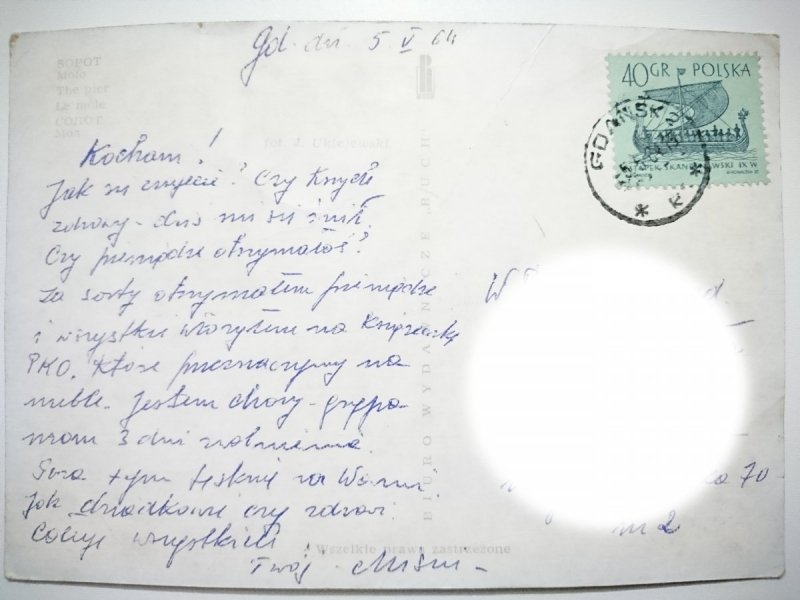 Gd. dn. 5 V 64
SOPOT
Molo
The pier
Le môle
СОПОТ
Мол
fot. J. Uklejewski
40 GR POLSKA
GDAŃSK 2
Kocham!
Jak się czujecie? Czy Krzyś
zdrowy - dziś mi się śnił.
Czy pieniądze otrzymałaś?
Za sorty otrzymałem pieniądze
i wszystkie włożyłem na książeczkę
PKO, które przeznaczymy na
meble. Jestem chory - grypa
mam 3 dni zwolnienia.
Poza tym tęsknię za Wami.
Jak dziadkowie czy zdrowi.
Całuję wszystkich
Twój
BIURO WYDAWNICZE "RUCH"
Wszelkie prawa zastrzeżone
W
70
m 2